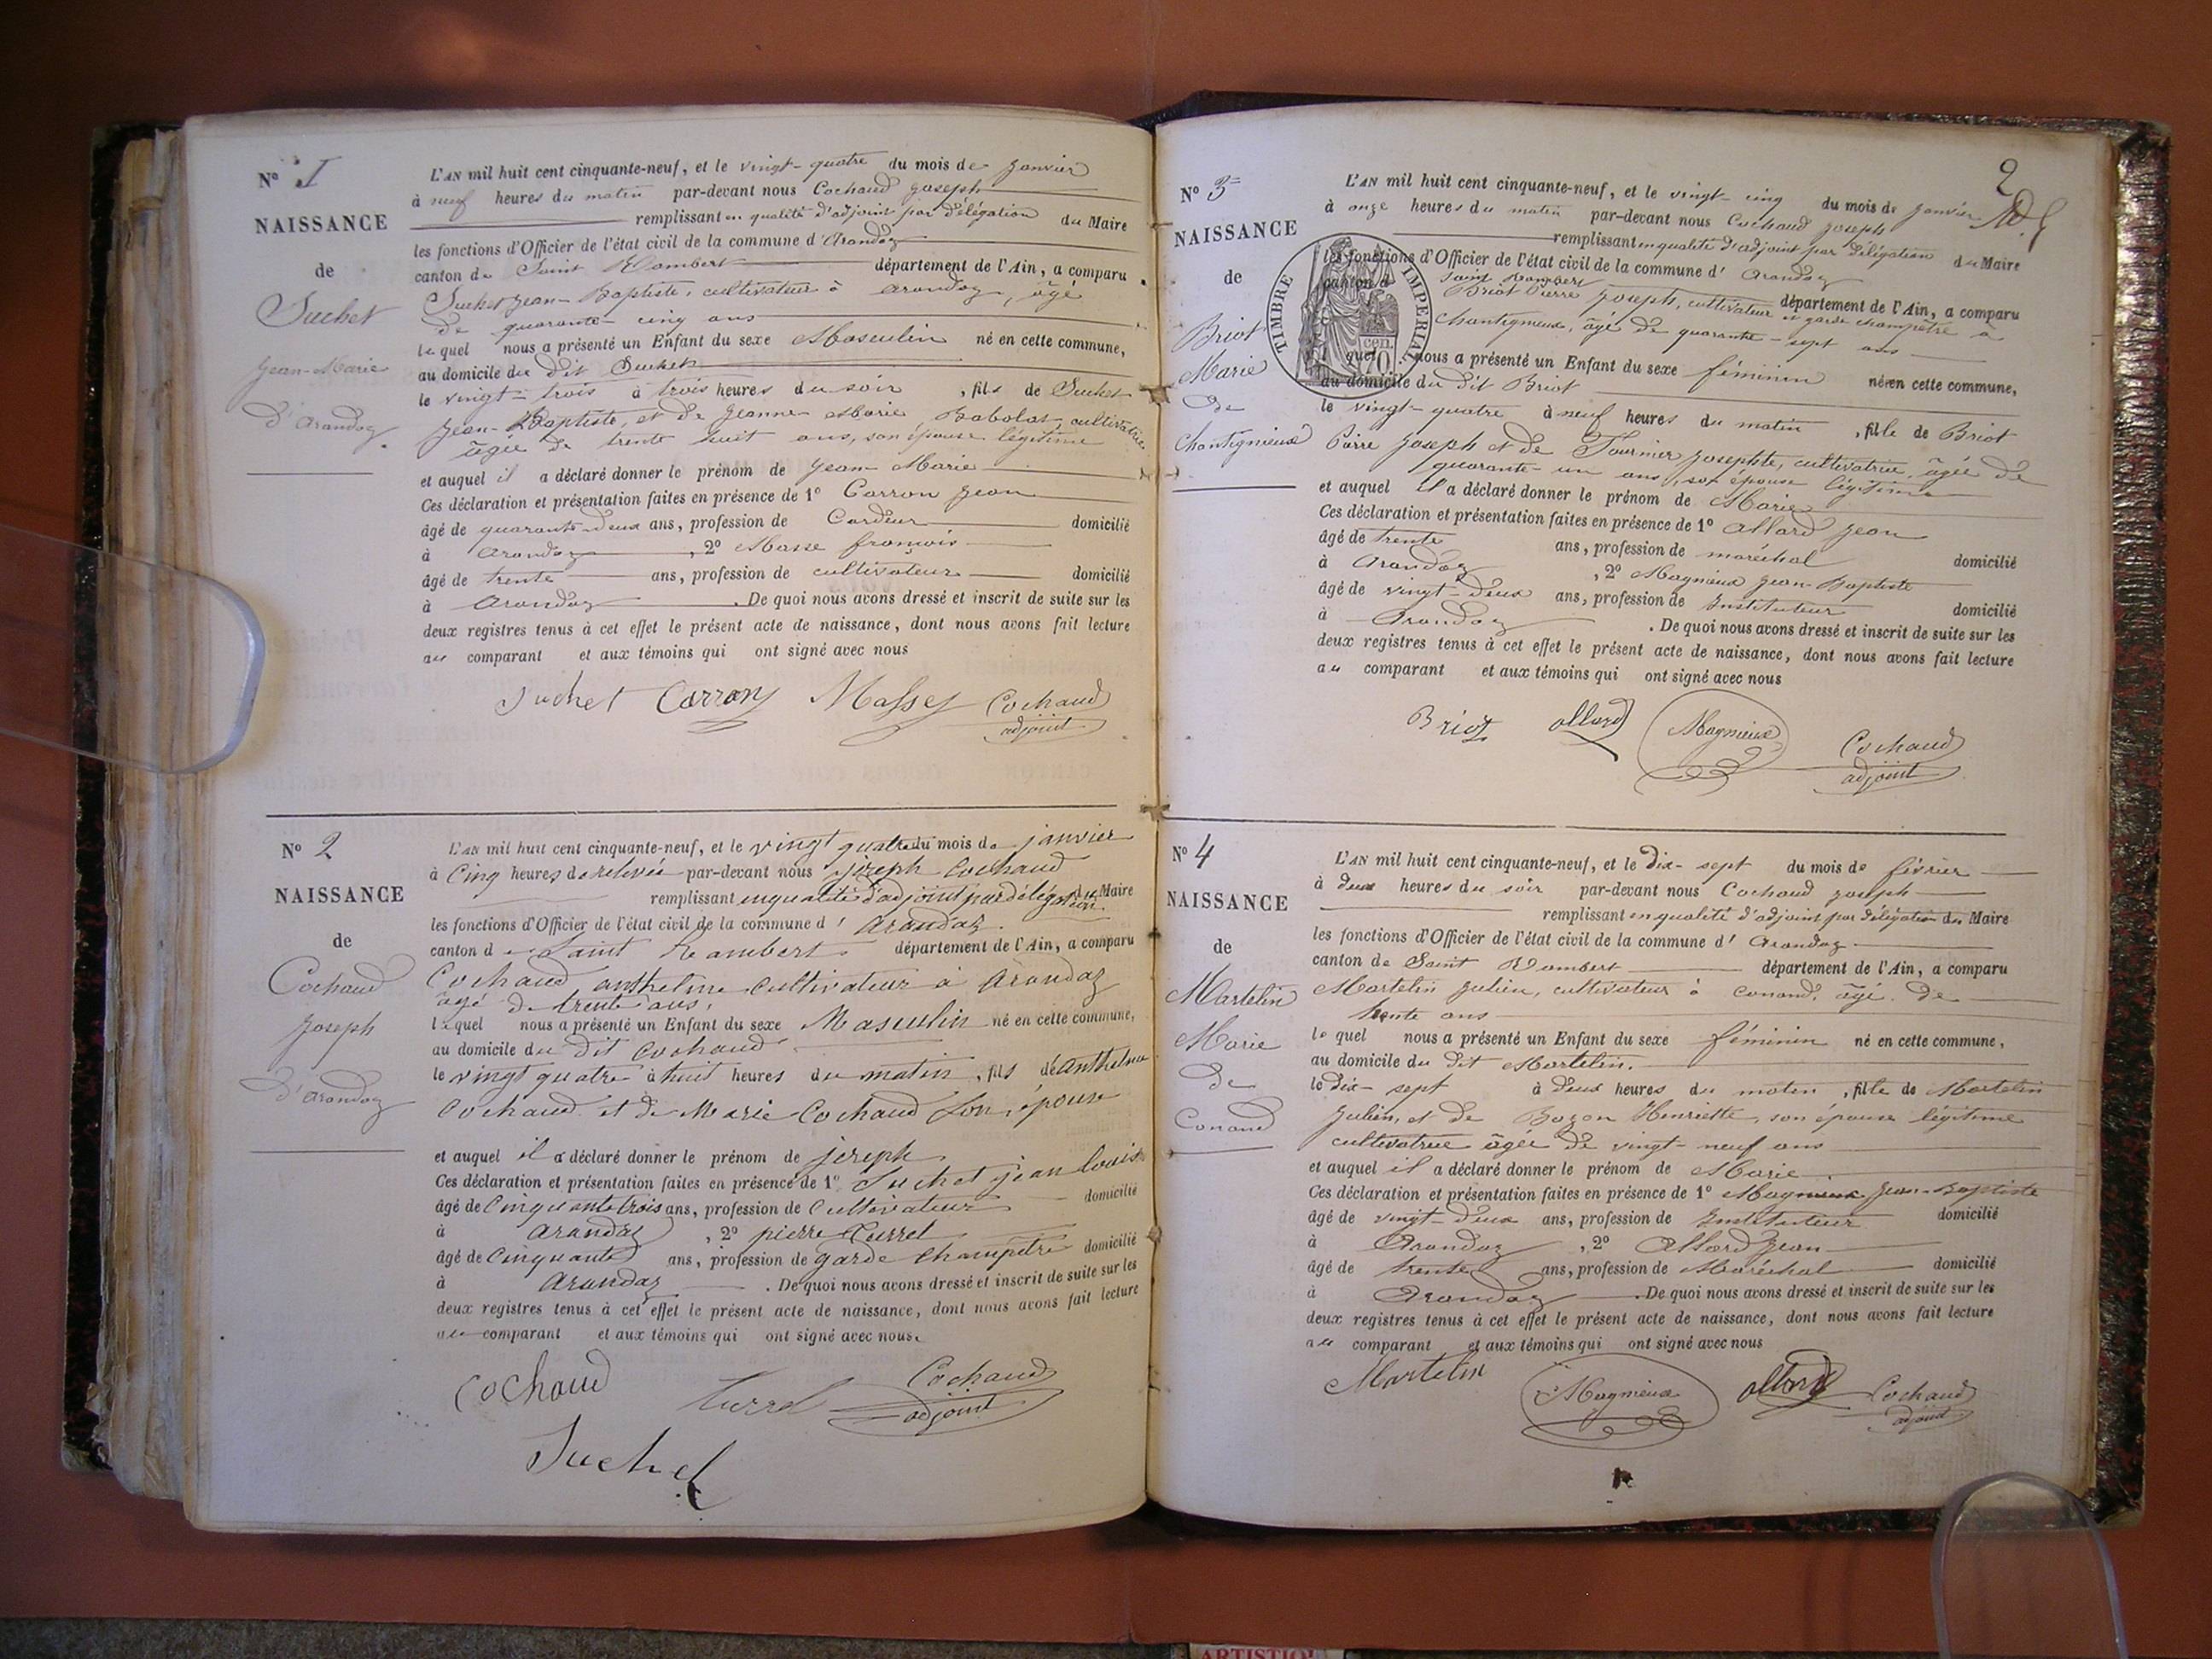 N° 1
NAISSANCE
de
Suchet
Jean-Marie
d'Arandaz
L'AN mil huit cent cinquante-neuf, et le vingt-quatre du mois de Janvier
à neuf heures du matin par-devant nous Cochaud Joseph
remplissant en qualité d'adjoint par délégation du Maire
les fonctions d'Officier de l'état civil de la commune d'Arandaz
canton de Saint Rambert département de l'Ain, a comparu
Suchet Jean-Baptiste, cultivateur à Arandaz, âgé
de quarante-cinq ans
lequel nous a présenté un Enfant du sexe Masculin né en cette commune,
au domicile du dit Suchet
le vingt-trois à trois heures du soir, fils de Suchet
Jean-Baptiste, et de Jeanne Marie Babolat cultivatrice
âgée de trente huit ans, son épouse légitime
et auquel il a déclaré donner le prénom de Jean-Marie
Ces déclaration et présentation faites en présence de 1° Carron Jean
âgé de quarante-deux ans, profession de Cardeur domicilié
à Arandaz, 2° Masse françois
âgé de trente ans, profession de cultivateur domicilié
à Arandaz. De quoi nous avons dressé et inscrit de suite sur les
deux registres tenus à cet effet le présent acte de naissance, dont nous avons fait lecture
au comparant et aux témoins qui ont signé avec nous
Suchet Carron Massey Cochaud
adjoint
N° 2
NAISSANCE
de
Cochaud
Joseph
d'Arandaz
L'AN mil huit cent cinquante-neuf, et le vingt quatre du mois de janvier
à Cinq heures de relevée par-devant nous joseph Cochaud
remplissant en qualité d'adjoint par délégation du Maire
les fonctions d'Officier de l'état civil de la commune d'Arandaz
canton de Saint Rambert département de l'Ain, a comparu
Cochaud anthelme Cultivateur à Arandaz
âgé de trente ans,
lequel nous a présenté un Enfant du sexe Masculin né en cette commune,
au domicile du dit Cochaud
le vingt quatre à huit heures du matin, fils de Anthelme
Cochaud et de Marie Cochaud Son épouse
et auquel il a déclaré donner le prénom de joseph
Ces déclaration et présentation faites en présence de 1° Suchet jean louis
âgé de Cinquante trois ans, profession de Cultivateur domicilié
à Arandaz, 2° pierre Turrel
âgé de Cinquante ans, profession de garde Champêtre domicilié
à Arandaz. De quoi nous avons dressé et inscrit de suite sur les
deux registres tenus à cet effet le présent acte de naissance, dont nous avons fait lecture
au comparant et aux témoins qui ont signé avec nous.
Cochaud Turrel Cochaud
adjoint
Suchet
2
N° 3
NAISSANCE
de
Briot
Marie
de
Chantignieux
TIMBRE IMPERIAL
cen.
70
L'AN mil huit cent cinquante-neuf, et le vingt-cinq du mois de Janvier
à onze heures du matin par-devant nous Cochaud Joseph
remplissant en qualité d'adjoint par délégation du Maire
les fonctions d'Officier de l'état civil de la commune d'Arandaz
canton d saint Rambert département de l'Ain, a comparu
Briot Pierre Joseph, cultivateur et garde champêtre à
Chantigneux, âgé de quarante-sept ans
l quel nous a présenté un Enfant du sexe féminin né en cette commune,
au domicile du dit Briot
le vingt-quatre à neuf heures du matin, fille de Briot
Pierre Joseph et de Fournier Josephte, cultivatrice, âgée de
quarante-un ans, son épouse légitime
et auquel il a déclaré donner le prénom de Marie
Ces déclaration et présentation faites en présence de 1° Allard Jean
âgé de trente ans, profession de maréchal domicilié
à Arandaz, 2° Magnieux Jean-Baptiste
âgé de vingt-deux ans, profession de Instituteur domicilié
à Arandaz. De quoi nous avons dressé et inscrit de suite sur les
deux registres tenus à cet effet le présent acte de naissance, dont nous avons fait lecture
au comparant et aux témoins qui ont signé avec nous
Briot allard Magnieux Cochaud
adjoint
N° 4
NAISSANCE
de
Martelin
Marie
de
Conand
L'AN mil huit cent cinquante-neuf, et le dix-sept du mois de février
à deux heures du soir par-devant nous Cochaud Joseph
remplissant en qualité d'adjoint par délégation du Maire
les fonctions d'Officier de l'état civil de la commune d'Arandaz
canton de Saint Rambert département de l'Ain, a comparu
Martelin Julien, cultivateur à Conand, âgé de
trente ans
lequel nous a présenté un Enfant du sexe féminin né en cette commune,
au domicile du dit Martelin.
le dix-sept à deux heures du matin, fille de Martelin
Julien, et de Bozon Henriette, son épouse légitime
cultivatrice âgée de vingt-neuf ans
et auquel il a déclaré donner le prénom de Marie
Ces déclaration et présentation faites en présence de 1° Magnieux Jean-Baptiste
âgé de vingt-deux ans, profession de Instituteur domicilié
à Arandaz, 2° Allard Jean
âgé de trente ans, profession de Maréchal domicilié
à Arandaz. De quoi nous avons dressé et inscrit de suite sur les
deux registres tenus à cet effet le présent acte de naissance, dont nous avons fait lecture
au comparant et aux témoins qui ont signé avec nous
Martelin Magnieux allard Cochaud
adjoint